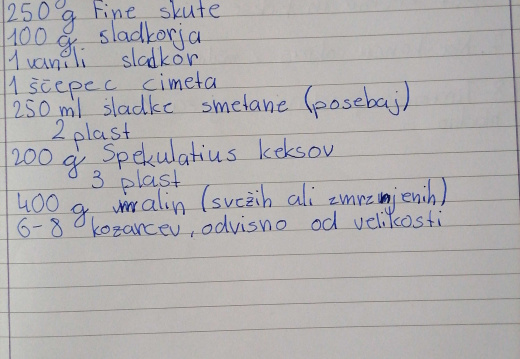 250 g Fine skute
100 g sladkorja
1 vanili sladkor
1 ščepec cimeta
250 ml sladke smetane (posebaj)
2 plast
200 g Spekulatius keksov
3 plast
400 g malin (svežih ali zmrznjenih)
6-8 kozarcev, odvisno od velikosti